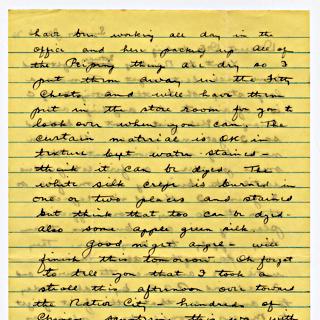 have been working all day in the
office and here packing up. All of
the Peiping things are dry so I
put them away in the
Chests and will have them
put in the store room for you to
look over when you can. The
curtain material is OK in
texture but water stained -
think it can be dyed. The
white silk crepe is burned in
one or two places and stained
but think that too can be dyed.
also some apple green silk.
Good night angel - will
finish this tomorrow. Oh forgot
to tell you that I took a
stroll this afternoon over toward
the Native City - hundreds of
Chinese